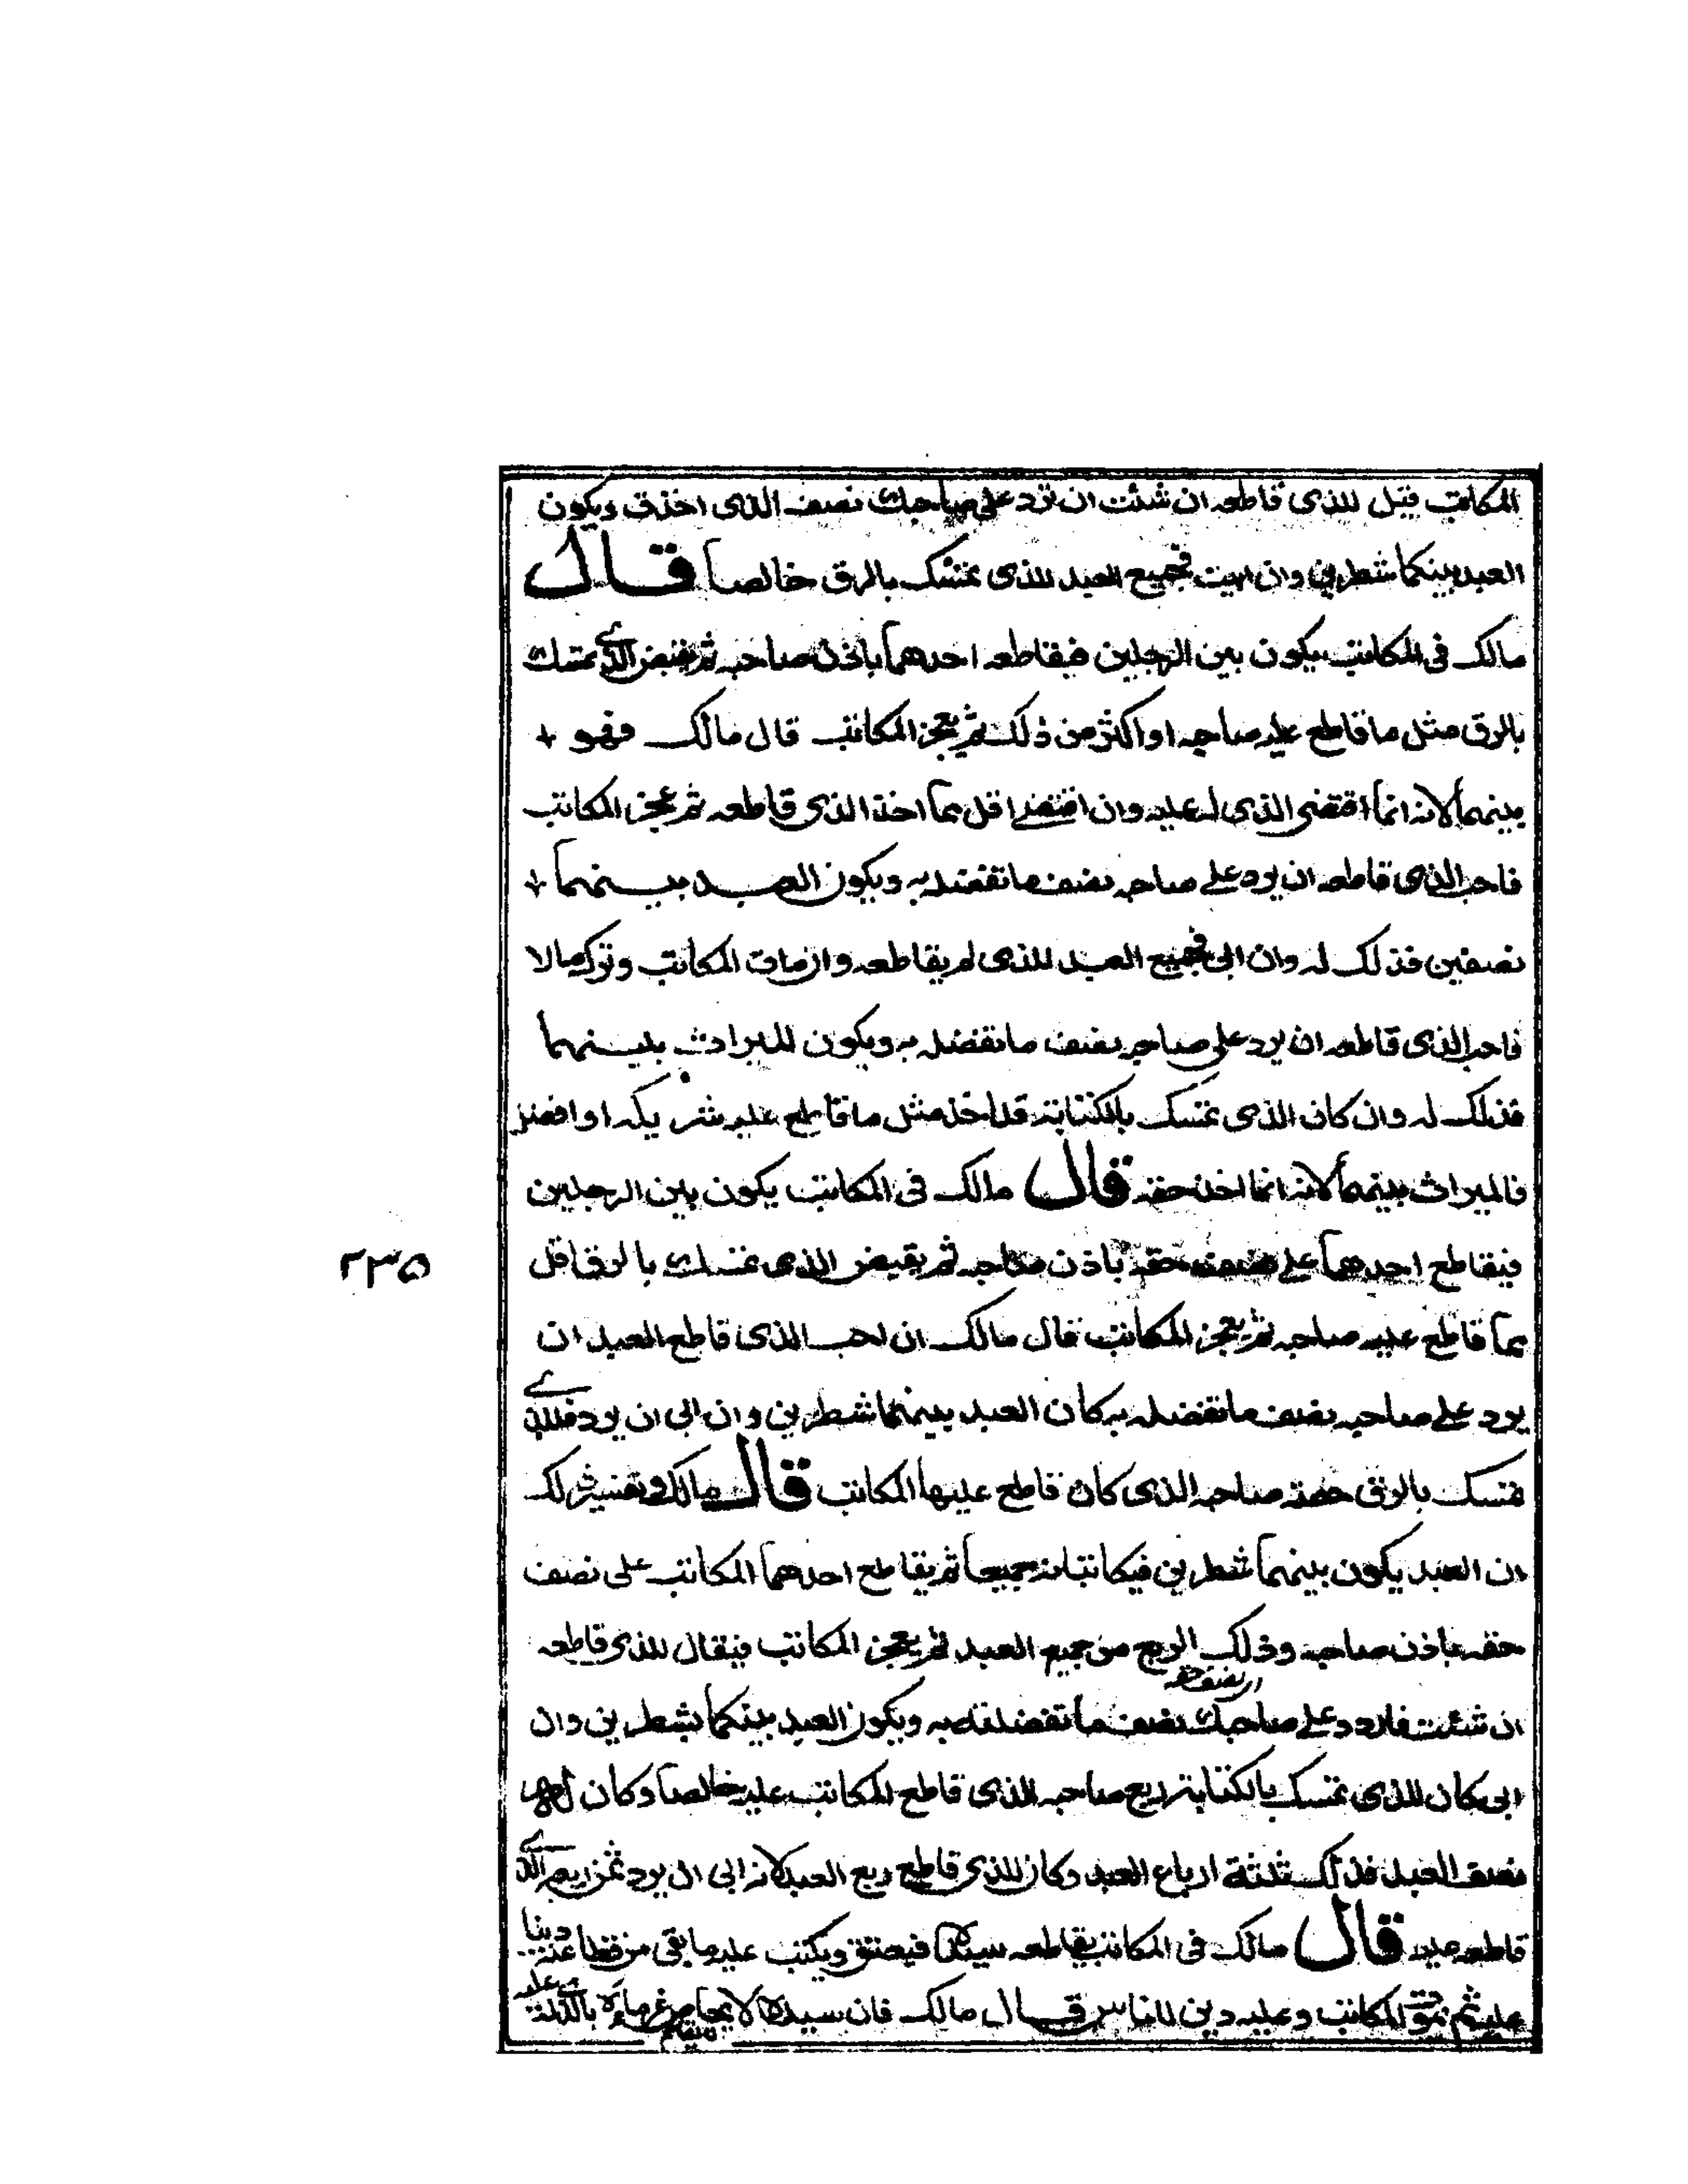 المكاتب قيل للذى قاطعه ان شئت ان ترد على صاحبك نصف الذى اخذت ويكون
العبد بينكما شطرين وان ابيت فجميع العبد للذى تمسك بالرق خالصا قال
مالك فى المكاتب يكون بين الرجلين فيقاطعه احدهما باذن صاحبه ثم يقبض الذي تمسك
بالرق مثل ما قاطع عليه صاحبه او اكثر من ذلك ثم يعجز المكاتب قال مالك فهو
بينهما لانه انما اقتضى الذى له عليه وان اقتضى اقل مما اخذ الذى قاطعه ثم عجز المكاتب
فاحب الذى قاطعه ان يرد على صاحبه نصف ما تفضله به ويكون العبد بينهما
نصفين فذلك له وان ابى فجميع العبد للذى لم يقاطعه وان مات المكاتب وترك مالا
فاحب الذى قاطعه ان يرد على صاحبه نصف ما تفضله به ويكون الميراث بينهما
فذلك له وان كان الذى تمسك بالكتابة قد اخذ مثل ما قاطع عليه شريكه او افضل
فالميراث بينهما لانه انما اخذ حقه قال مالك فى المكاتب يكون بين الرجلين
فيقاطع احدهما على نصف حقه باذن صاحبه ثم يقبض الذى تمسك بالرق اقل
مما قاطع عليه صاحبه ثم يعجز المكاتب قال مالك ان احب الذى قاطع العبد ان
يرد على صاحبه نصف ما تفضله به كان العبد بينهما شطرين وان ابى ان يرد فللذي
تمسك بالرق حصة صاحبه الذى كان قاطع عليها المكاتب قال مالك وتفسير ذلك
ان العبد يكون بينهما شطرين فيكاتبانه جميعا ثم يقاطع احدهما المكاتب على نصف
حقه باذن صاحبه وذلك الربع من جميع العبد ثم يعجز المكاتب فيقال للذى قاطعه
ان شئت فاردد على صاحبك نصف ما تفضلته به ويكون العبد بينكما شطرين وان
ابى كان للذى تمسك بالكتابة ربع صاحبه الذى قاطع المكاتب عليه خالصا وكان له
نصف العبد فذلك ثلثة ارباع العبد وكان للذى قاطع ربع العبد لانه ابى ان يرد ثمن ربعه الذي
قاطعه عليه قال مالك فى المكاتب يقاطعه سيده فيعتق ويكتب عليه ما بقى من قطاعته دينا
عليه ثم يموت المكاتب وعليه دين للناس قال مالك فان سيده لا يحاص غرماءه بالذى له عليه
٢٣٥